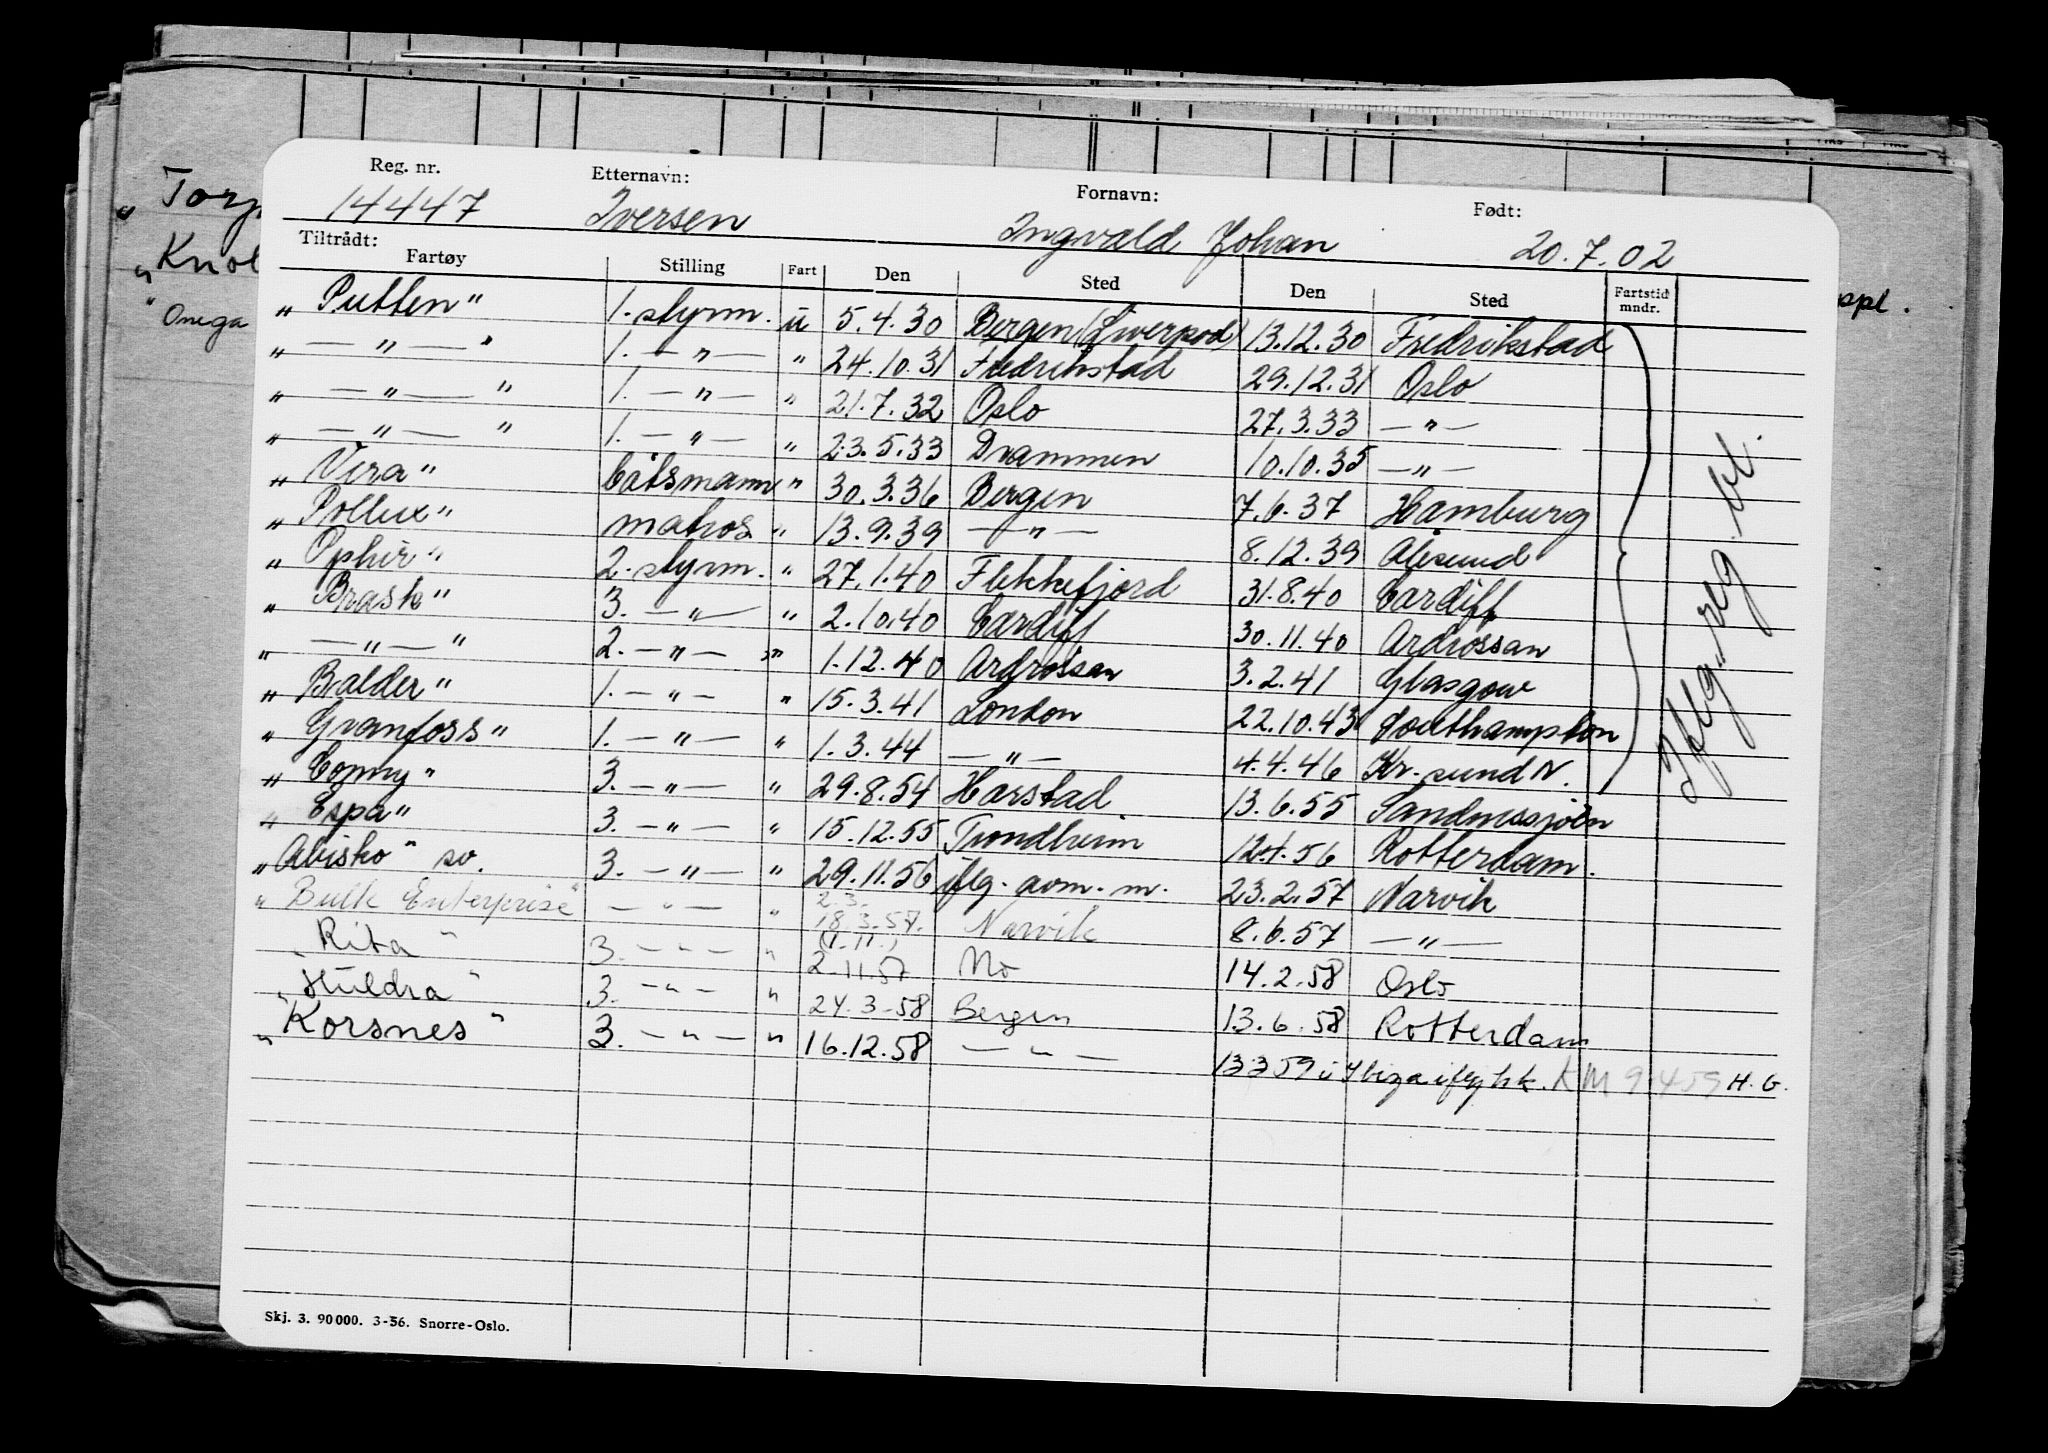 Reg. nr. Etternavn: Fornavn: Født:
14447 Iversen Ingvald Johan 20.7.02
Tiltrådt:
Fartøy Stilling Fart Den Sted Den Sted Fartstid mndr.
„ Putten" 1. styrm. u 5.4.30 Bergen (Liverpool) 13.12.30 Fredrikstad
„ — " — " 1. — " — " 24.10.31 Fredrikstad 29.12.31 Oslo
„ — " — " 1. — " — " 21.7.32 Oslo 27.3.33 — " —
„ — " — " 1. — " — " 23.5.33 Drammen 10.10.35 — " —
„ Vera" båtsmann " 30.3.36 Bergen 7.6.37 Hamburg
„ Pollux" matros " 13.9.39 — " — 8.12.39 Ålesund
„ Ophir" 2. styrm. " 27.1.40 Flekkefjord 31.8.40 Cardiff
„ Brask" 3. — " — " 2.10.40 Cardiff 30.11.40 Ardrossan
„ — " — " 2. — " — " 1.12.40 Ardrossan 3.2.41 Glasgow
„ Balder" 1. — " — " 15.3.41 London 22.10.43 Southampton
„ Granfoss" 1. — " — " 1.3.44 — " — 4.4.46 Kr. sund N.
„ Conny" 3. — " — " 29.8.54 Harstad 13.6.55 Sandnessjøen
„ Espa" 3. — " — " 15.12.55 Trondheim 12.4.56 Rotterdam.
„ Abisko" sv. 3. — " — " 29.11.56 iflg. avm. m. 23.2.57 Narvik
„ Bulk Enterprise" — " — " 2.3. 18.3.57. Narvik 8.6.57 — " —
„ Rita" 3. — " — " (1.11.) 2.11.57 Mo 14.2.58 Oslo
„ Huldra" 3. — " — " 24.3.58 Bergen 13.6.58 Rotterdam
„ Korsnes" 3. — " — " 16.12.58 — " — 13.3.59 i Ibiza iflg hk. KM 9.4.59 H.G.
Iflg. reg. bl.
Skj. 3. 90 000. 3-56. Snorre-Oslo.
„ Onega